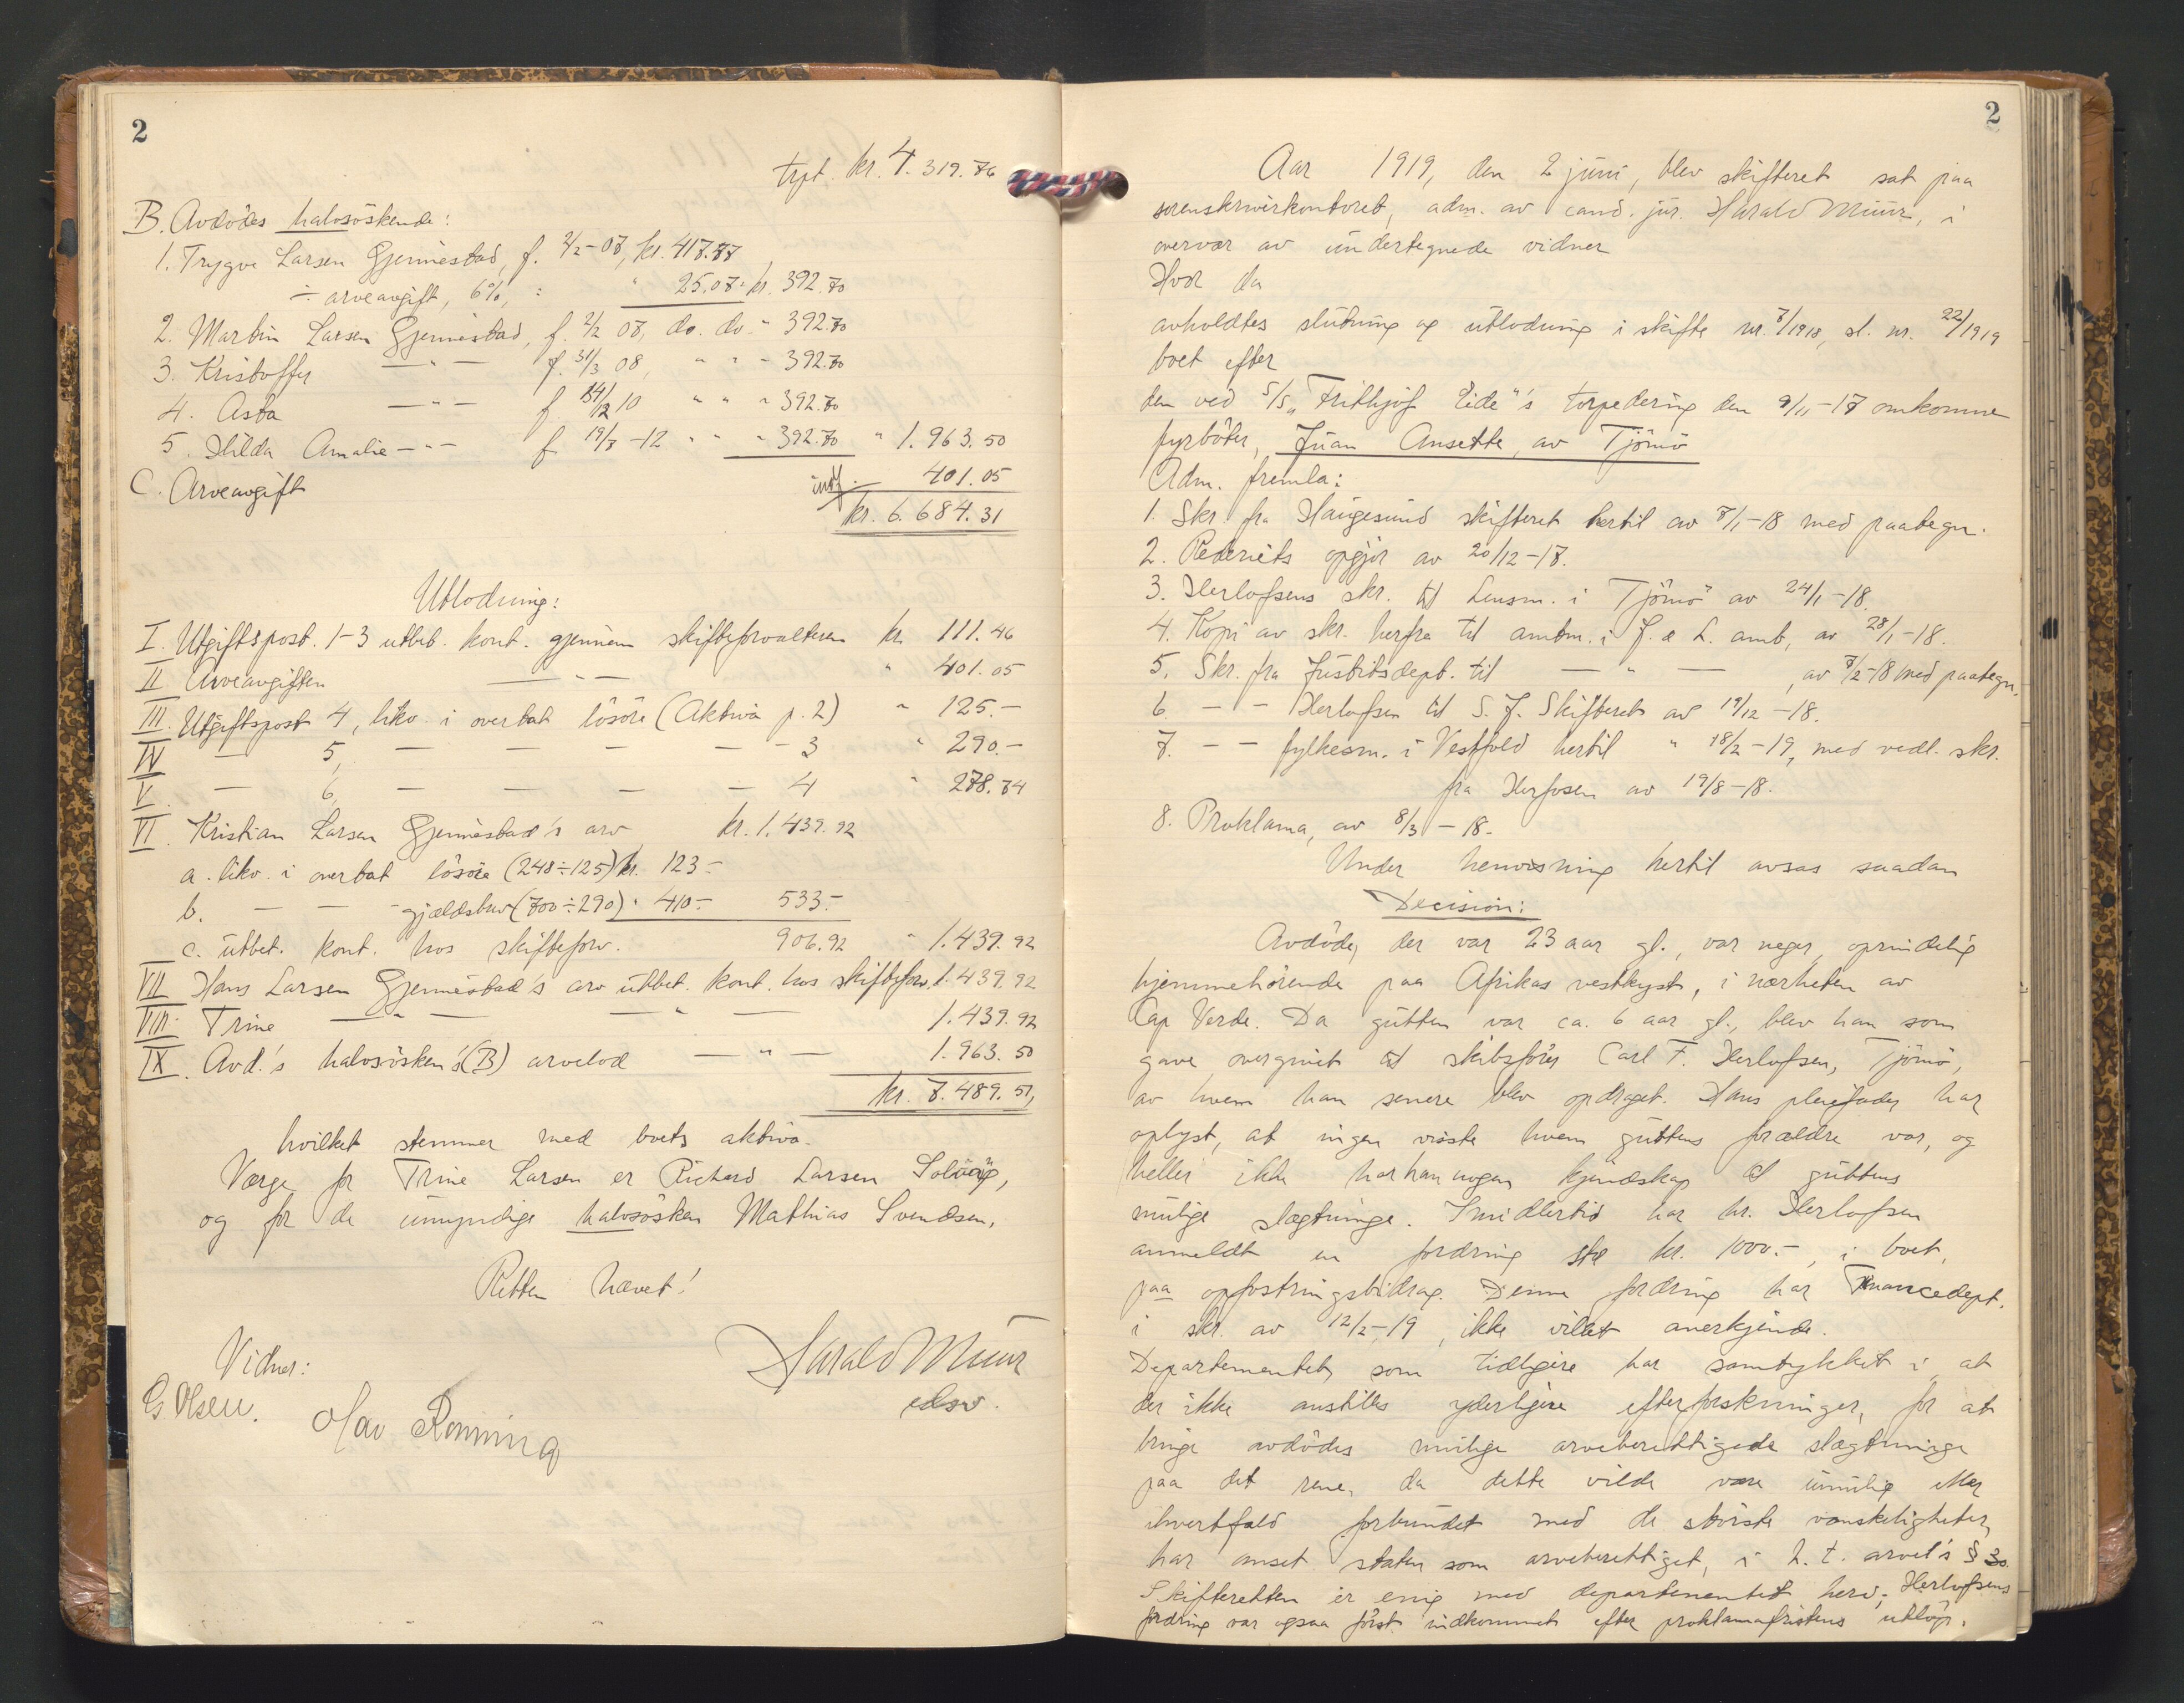 2
trpt. kr. 4.319.76
B. Avdödes halvsöskende:
1. Trygve Larsen Gjennestad, f. 2/2-07, kr. 417.77
÷ arveavgift, 6%, : " 25.07 kr. 392.70
2. Martin Larsen Gjennestad, f. 2/2 07, do. do. " 392.70
3. Kristoffer — " — f. 31/3 08, " " " 392.70
4. Asta — " — f. 14/12 10 " " " 392.70
5. Hilda Amalie — " — f. 19/3 -12 " " " 392.70 " 1.963.50
C. Arveavgift 401.05
kr. 6.684.31
Utlodning:
I. Utgiftspost. 1-3 utbet. kont. gjennem skifteforvalteren kr. 111.46
II Arveavgiften — " — " 401.05
III. Utgiftspost 4, likv. i overtat lösöre (Aktiva p. 2) " 125.-
IV — 5, — — — — - 3 " 290.-
V. — 6, — — — — 4 " 278.74
VI. Kristian Larsen Gjennestad's arv kr. 1.439.92
a. likv. i overtat lösöre (248÷125) kr. 123-
b. — — - gjældsbrev (700÷290) " 410.- 533.-
c. utbet. kont. hos skifteforv. 906.92 " 1.439.92
VII Hans Larsen Gjennestad's arv utbet. kont. hos skifteforv. 1.439.92
VIII. Trine — " — — " — 1.439.92
IX. Avd.'s halvsösken's (B) arvelod — " — 1.963.50
kr. 7.489.51,
hvilket stemmer med boets aktiva.
Værge for Trine Larsen er Richard Larsen
og for de umyndige halvsösken Mathias Svendsen.
Retten hævet!
Vidner: Harald Muur
G Olsen. edsv.
Olav Rönning
2
Aar 1919, den 2 juni, blev skifteret sat paa
sorenskriverkontoret, adm. av cand. jur. Harald Muur, i
overvær av undertegnede vidner
Hvor da
avholdtes slutning og utlodning i skifte nr. 7/1918, sl. nr. 22/1919
boet efter
den ved S/S "Fridthjof Eide"'s torpedering den 9/11-17 omkomne
fyrböter, Juan Ansette, av Tjömö
Adm. fremla:
1. Skr. fra Haugesund skifteret hertil av 7/1-18 med paategn.
2. Rederiets opgjör av 20/12-17.
3. Herlofsens skr. til Lensm. i Tjömö av 24/1-18.
4. Kopi av skr. herfra til amtm. i J. & L. amt, av 28/1-18.
5. Skr. fra Justitsdept. til — " — , av 7/2-18 med paategn.
6. - - Herlofsen til S. J. Skifteret av 19/12-18.
7. - - fylkesm. i Vestfold hertil " 18/2-19, med vedl. skr.
fra Herfosen av 19/8-18.
8. Proklama, av 8/3-18.
Under henvisning hertil avsas saadan
Decision:
Avdöde, der var 23 aar gl., var neger, oprindelig
hjemmehörende paa Afrikas vestkyst, i nærheten av
Cap Verde. Da gutten var ca. 6 aar gl., blev han som
gave overgivet til skibsförer Carl F. Herlofsen, Tjömö,
av hvem han senere blev opdraget. Hans pleiefader har
oplyst, at ingen visste hvem guttens forældre var, og
heller ikke har han nogen kjendskap til guttens
mulige slægtninge. Imidlertid har hr. Herlofsen
anmeldt en fordring stor kr. 1000.-, i boet,
paa opfostringsbidrag. Denne fordring har Financedept.
i skr. av 12/2-19, ikke villet anerkjende.
Departementet, som tidligere har samtykket i, at
der ikke anstilles yderligere efterforskninger, for at
bringe avdödes mulige arveberettigede slægtninge
paa det rene, da dette vilde være umulig eller
ihvertfald forbundet med de störste vanskeligheter,
har anset staten som arveberettiget, i h. t. arvel's § 30.
Skifteretten er enig med departementet herv; Herlofsens
fordring var ogsaa först indkommet efter proklamafristens utlöp.